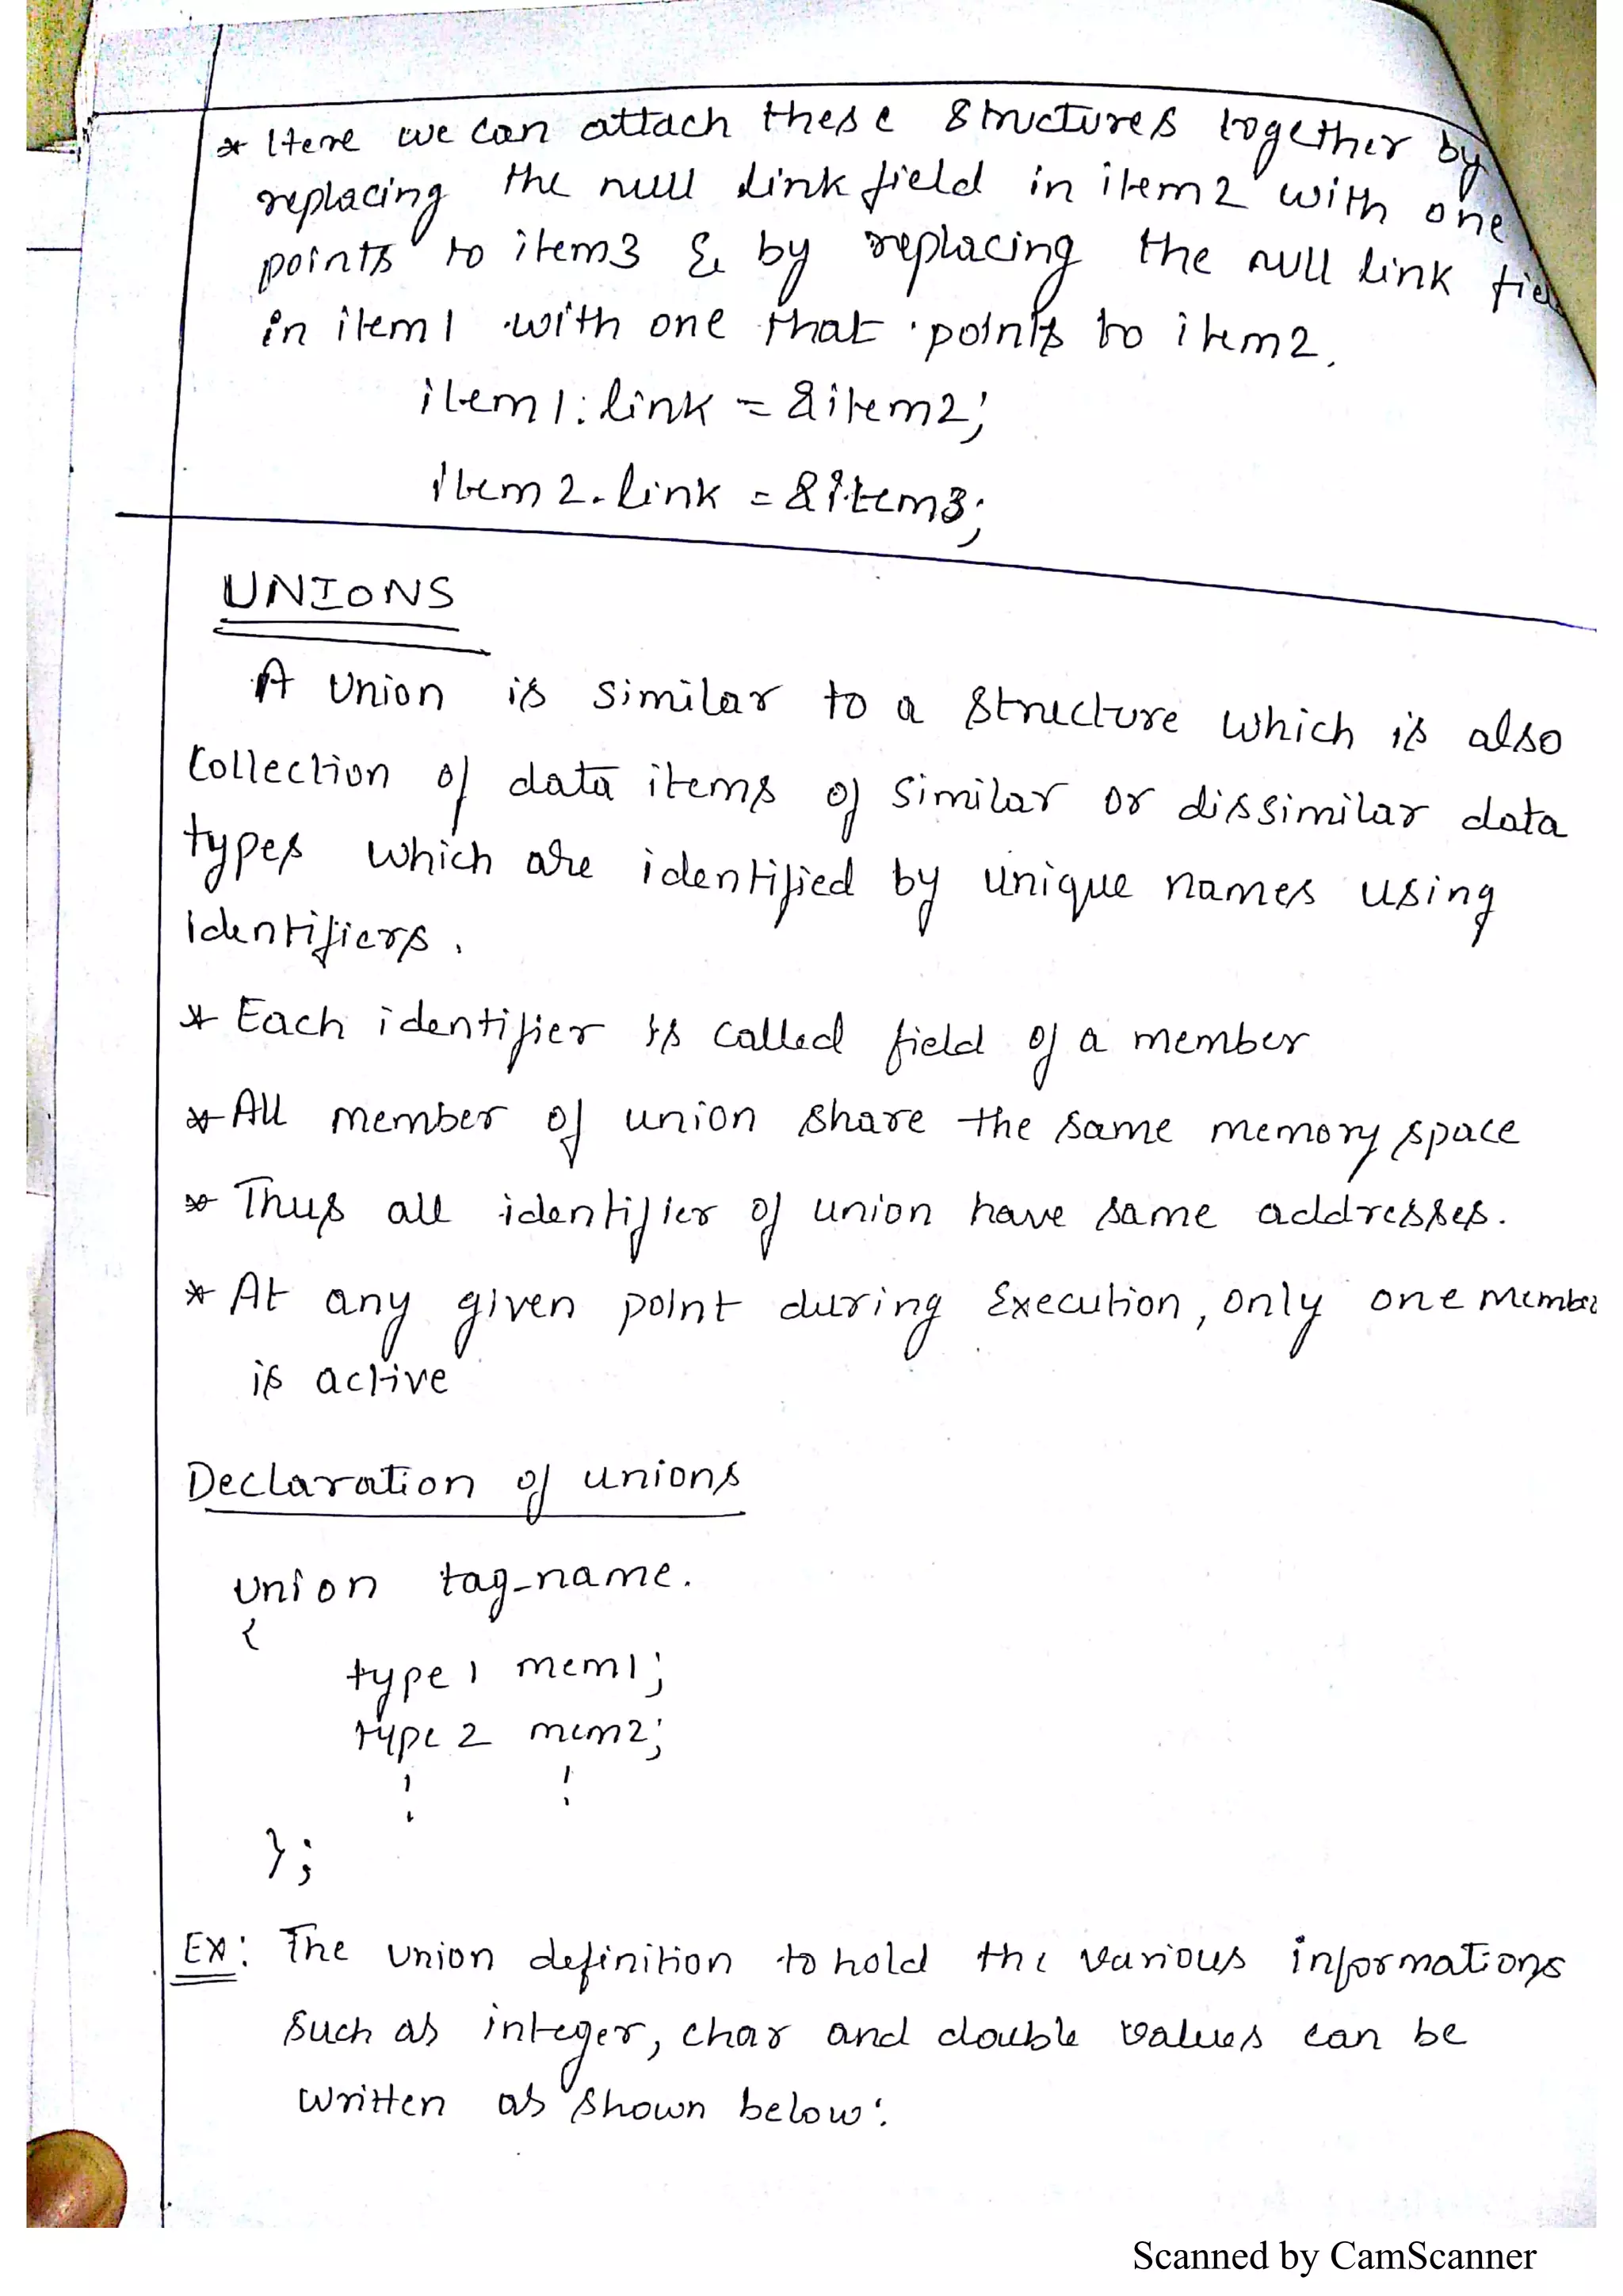 * Here we can attach these structures together by
replacing the null link field in item2 with one
points to item3 & by replacing the null link fie
in item1 with one that points to item2.
item1.link = &item2;
item2.link = &item3;
UNIONS
A Union is similar to a structure which is also
Collection of data items of similar or dissimilar data
types which are identified by unique names using
identifiers.
* Each identifier is called field of a member
* All member of union share the same memory space
* Thus all identifier of union have same addresses.
* At any given point during Execution, only one membe
is active
Declaration of unions
union tag-name.
{
type1 mem1;
type2 mem2;
⋮ ⋮
};
EX: The union definition to hold the various informations
such as integer, char and double values can be
written as shown below:
Scanned by CamScanner